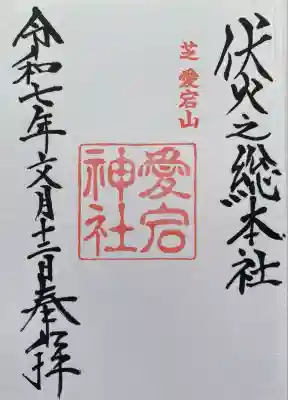 伏火之総本社
芝 愛宕山
愛宕
神社
令和七年文月十三日奉拝